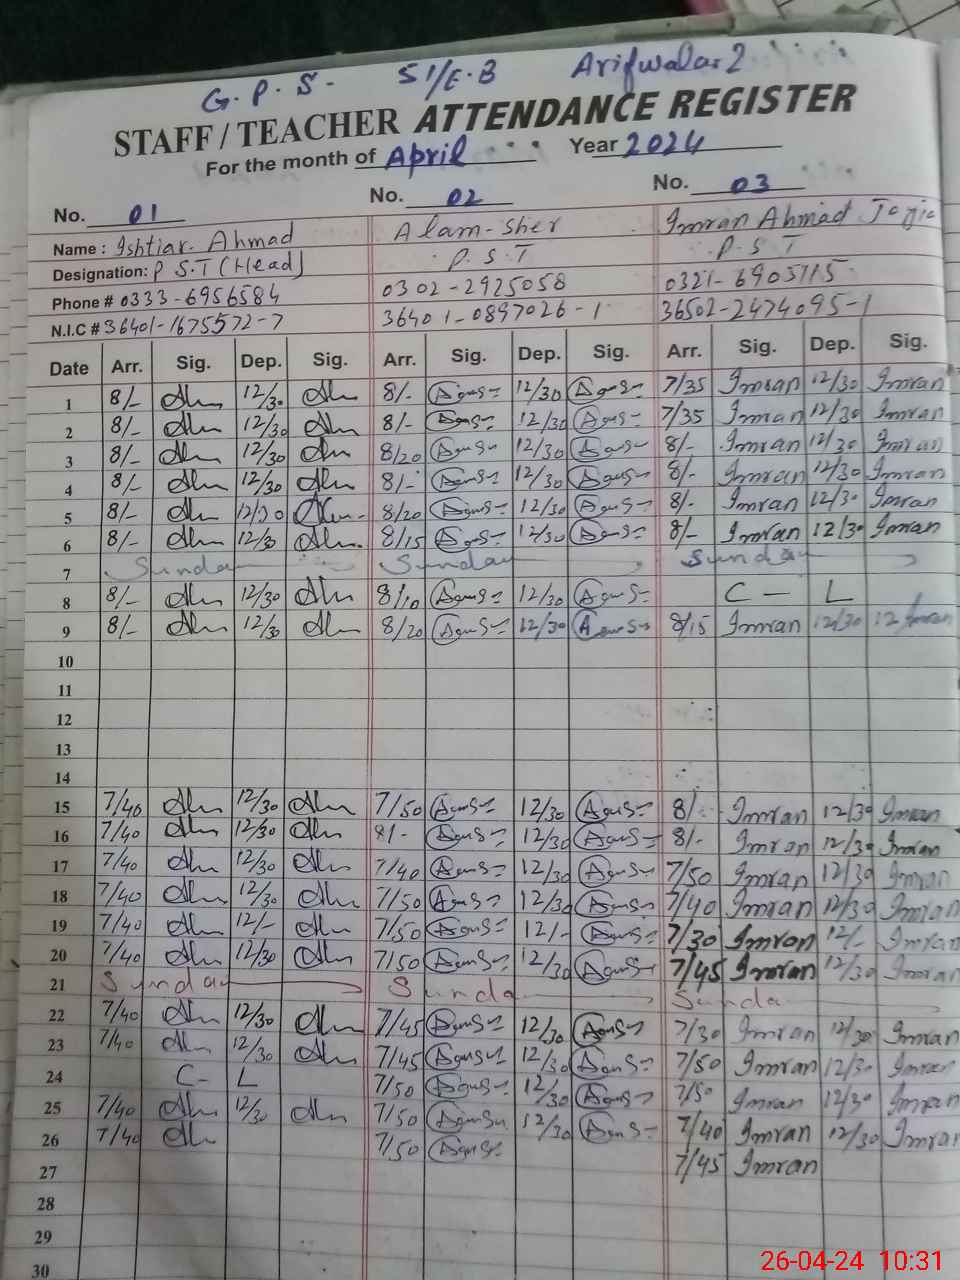 G. P. S. 51/E.B Arifwala-2
STAFF / TEACHER ATTENDANCE REGISTER
For the month of April Year 2024
No. 01 No. 02 No. 03
Name : Ishtiar. Ahmad Alam-Sher Imran Ahmad
Designation: P S.T (Head) P. S. T P. S T
Phone # 0333-6956584 0302-2925058 0321-6905115
N.I.C # 36401-1675572-7 36401-0897026-1 36502-2474095-1
Date Arr. Sig. Dep. Sig. Arr. Sig. Dep. Sig. Arr. Sig. Dep. Sig.
1 8/- 12/30 8/- 12/30 7/35 Imran 12/30 Imran
2 8/- 12/30 8/- 12/30 7/35 Imran 12/30 Imran
3 8/- 12/30 8/20 12/30 8/- Imran 12/30 Imran
4 8/- 12/30 8/- 12/30 8/- Imran 12/30 Imran
5 8/- 12/30 8/20 12/30 8/- Imran 12/30 Imran
6 8/- 12/30 8/15 12/30 8/- Imran 12/30 Imran
7 Sunday Sunday Sunday
8 8/- 12/30 8/10 12/30 C - L
9 8/- 12/30 8/20 12/30 8/15 Imran 12/30 12 Imran
10
11
12
13
14
15 7/40 12/30 7/50 12/30 8/- Imran 12/30 Imran
16 7/40 12/30 8/- 12/30 8/- Imran 12/30 Imran
17 7/40 12/30 7/40 12/30 7/50 Imran 12/30 Imran
18 7/40 12/30 7/50 12/30 7/40 Imran 12/30 Imran
19 7/40 12/- 7/50 12/- 7/30 Imran 12/- Imran
20 7/40 12/30 7/50 12/30 7/45 Imran 12/30 Imran
21 Sunday Sunda Sunda
22 7/40 12/30 7/45 12/30 7/30 Imran 12/30 Imran
23 7/40 12/30 7/45 12/30 7/50 Imran 12/30 Imran
24 C- L 7/50 12/30 7/50 Imran 12/30 Imran
25 7/40 12/30 7/50 12/30 7/40 Imran 12/30 Imran
26 7/40 7/50 7/45 Imran
27
28
29
30
26-04-24 10:31